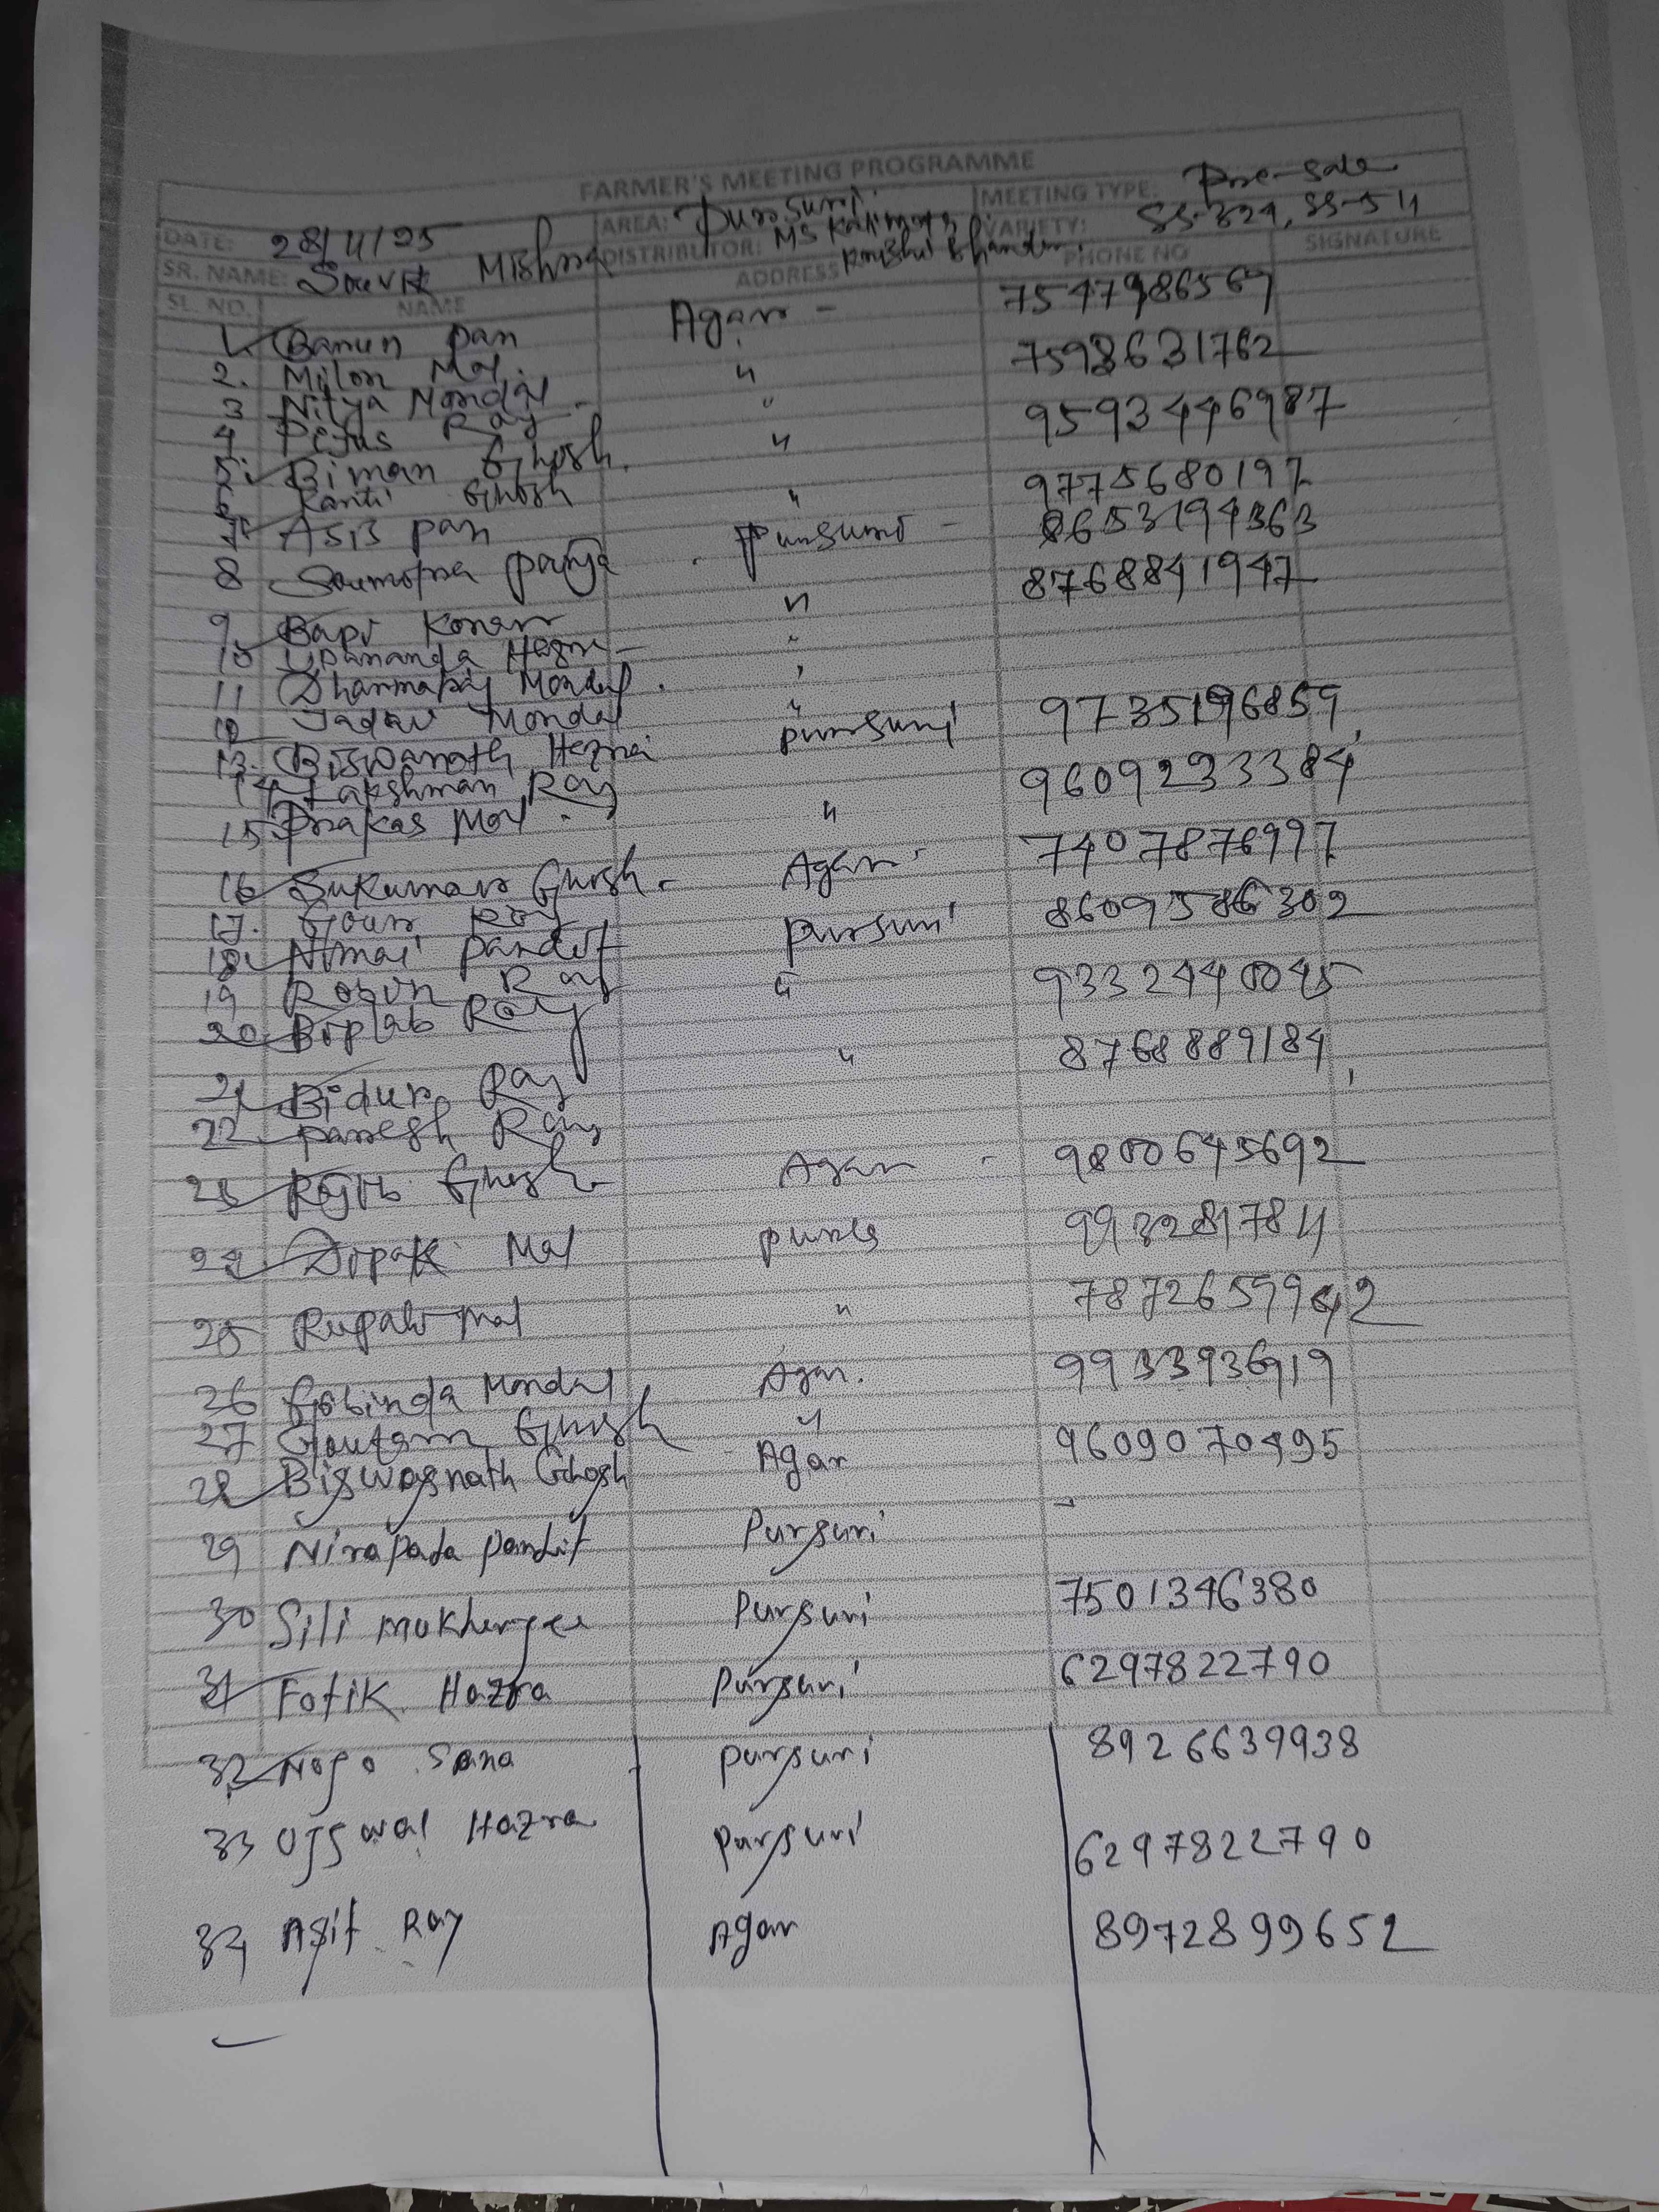 FARMER'S MEETING PROGRAMME
DATE: 28/11/25 AREA: Pursuri. MEETING TYPE: Pre-Sale
SR. NAME: Souvik Mishra DISTRIBUTOR: MS Kalimata Krishi Bhandar. VARIETY: SS-324, SS-511
SL. NO. NAME ADDRESS PHONE NO SIGNATURE
1. Barun Pan Agar - 7547986567
2. Milon Mal. " 7598631762
3 Nitya Mondal - "
4 Pejus Ray " 9593446987
5. Biman Ghosh.
6 Kanti Ghosh " 9775680197
7 Asis pan Pursuri - 8653194363
8 Soumotra panja 8768841947
9. Bapi Koner "
10 Upananda Hazra "
11 Dharmapaj Mondal. "
12 Jadav Mondal "
13. Biswanath Hazra Pursuri 9735196859,
14 Lakshman Ray 9609233384
15. Prakas Mal. "
16 Sukumar Ghosh. Agar 7407876997
17. Gour Ray 8609586302
18. Nimai pandit Pursuri
19 Robin Ray " 9332440045
20 Biplab Ray
21 Bidur Ray " 8768889184,
22 paresh Ray
23 Rajib Ghosh Agar - 9800645692
24 Dipak Mal purs 9932817811
25 Rupali Mal " 7872659942
26 Gobinda Mondal Agar. 9933936919
27 Goutam Ghosh "
28 Biswasnath Ghosh Agar 9609070495
29 Nirapada pandit Pursuri -
30 Sili mukherjee Pursuri 7501346380
31 Fotik Hazra Pursuri 6297822790
32 Nogo Sana Pursuri 8926639938
33 Ujjwal Hazra Pursuri 6297822790
34 Asit Ray Agar 8972899652